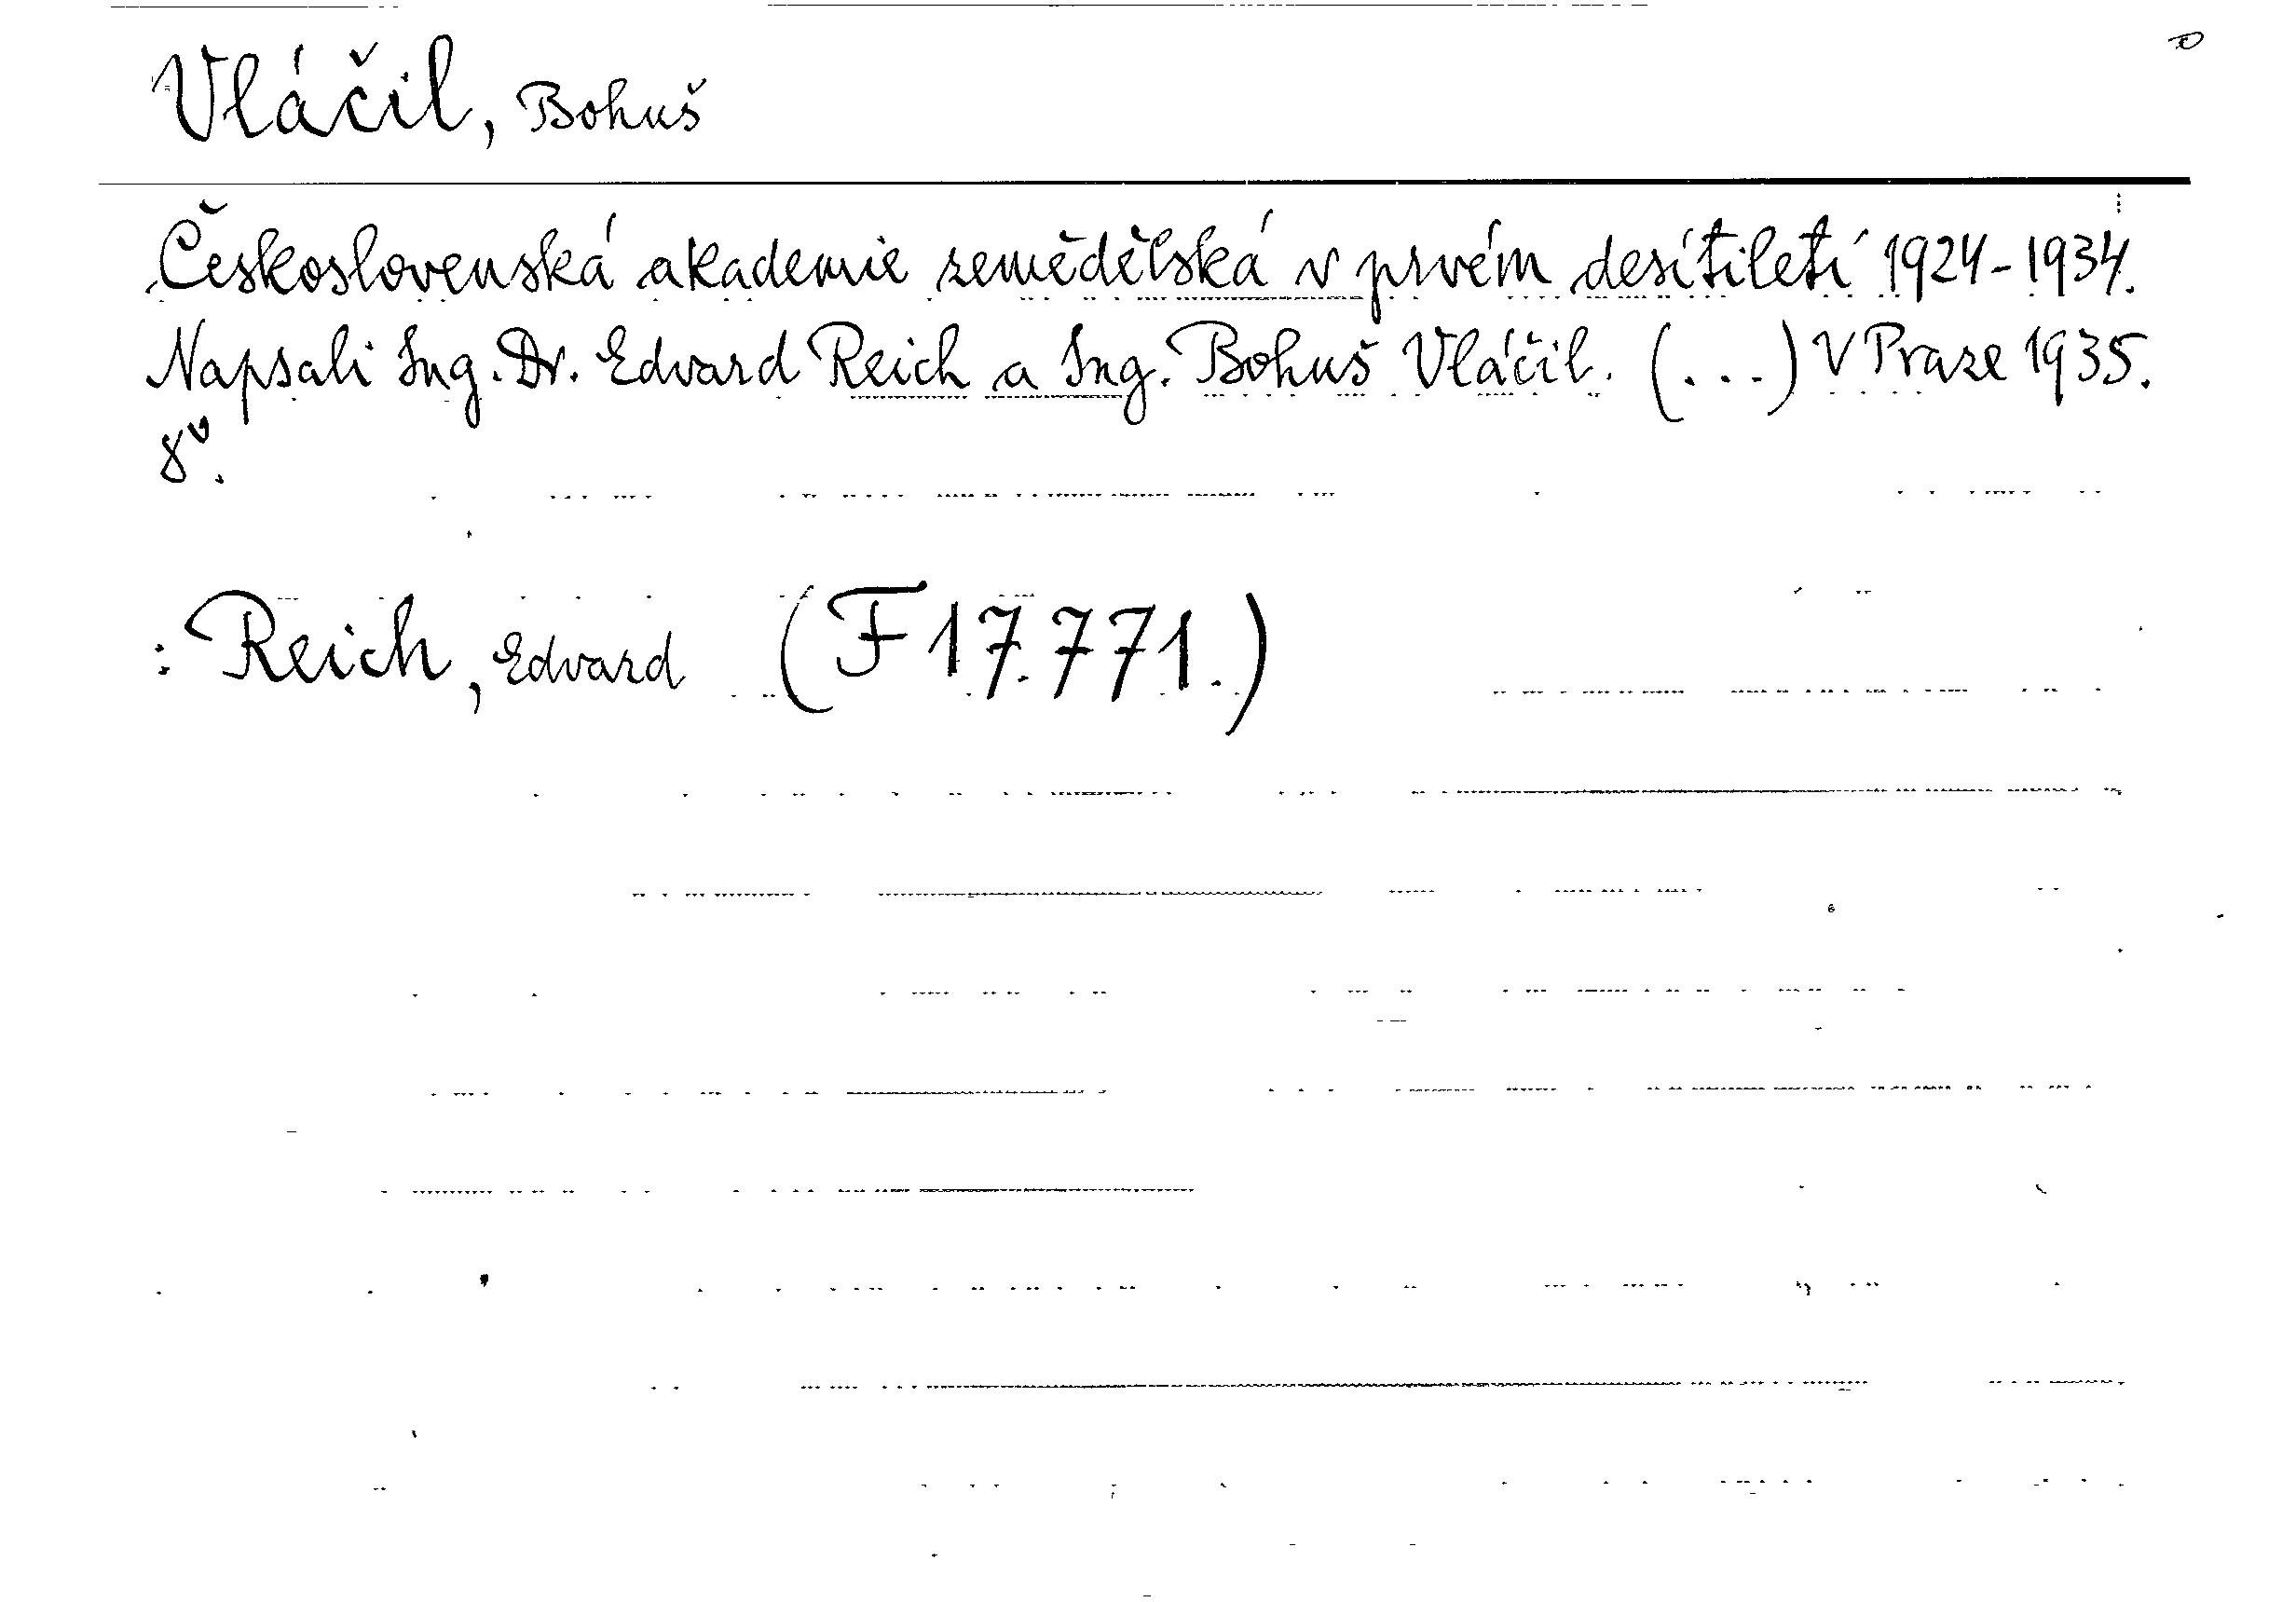 Vláčil, Bohuš
Československá akademie zemědělská v prvém desítiletí 1924-1934.
Napsali Ing. Dr. Edvard Reich a Ing. Bohuš Vláčil. (...) V Praze 1935.
8°.
: Reich, Edvard (F 17.771.)